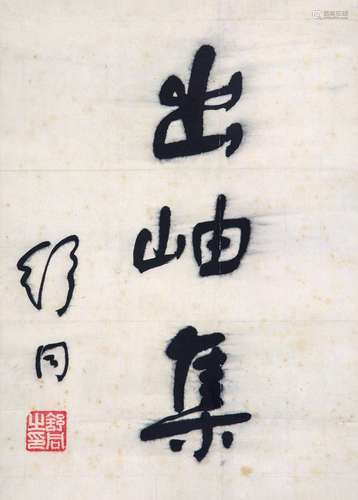 出岫集
舒同
舒同之印